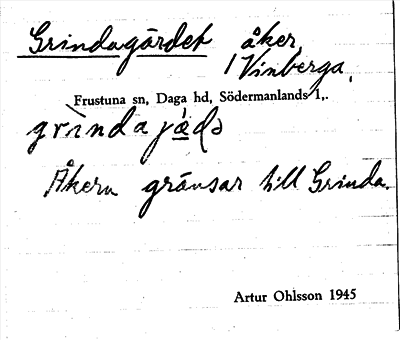 Grindagärdet åker
/ Vinberga,
Frustuna sn, Daga hd, Södermanlands l,.
grìndajæ̀ḍə
Åkern gränsar till Grinda.
Artur Ohlsson 1945